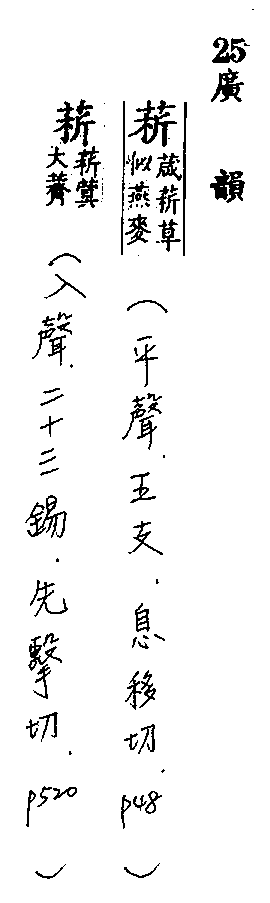 25廣韻
菥 葴菥草似燕麥 (平聲．五支．息移切．p48)
菥 菥蓂大薺 (入聲．二十三錫．先擊切．p520)